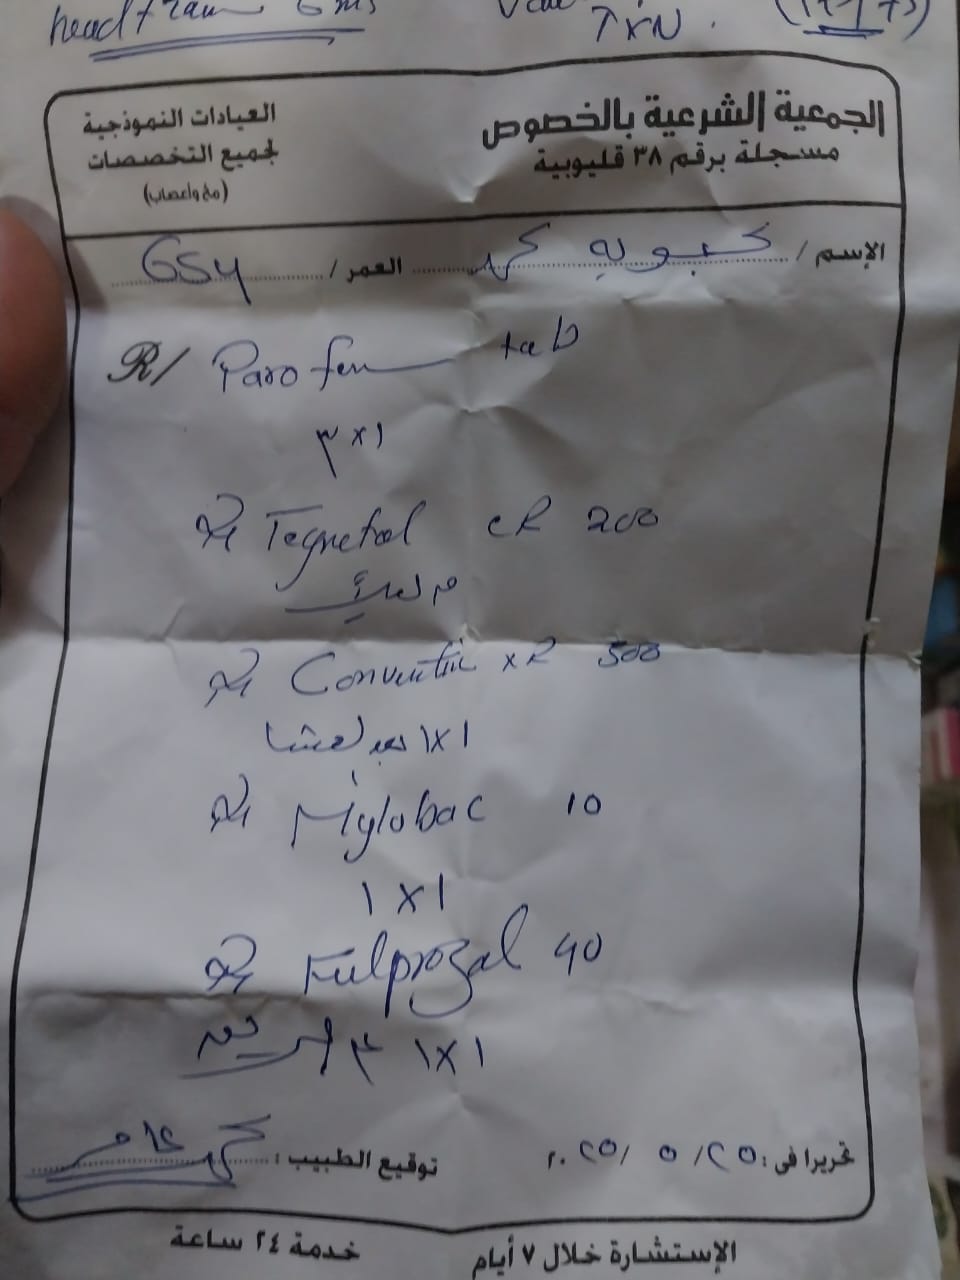 head trauma 6 ms
TXN.
الجمعية الشرعية بالخصوص
مسجلة برقم ٣٨ قليوبية
العيادات النموذجية
لجميع التخصصات
(مخ وأعصاب)
الإسم /
العمر / 65y
R/ Parofen tab
١×٣
Tegretol CR 200
Conventin XR 300
١×١ بعد العشا
Mylobac 10
١×١
Fulprozal 40
١×١
تحريرا فى : ٢٥/ ٥ /٢٠٢٥
توقيع الطبيب :
الإستشارة خلال ٧ أيام
خدمة ٢٤ ساعة